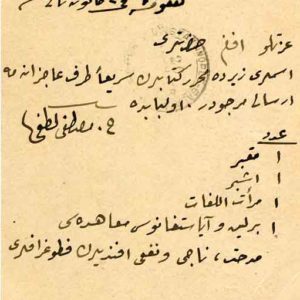 عزتلو افندم حضرتلری
اسملری زیرده محرر کتابلرك سریعاً طرف عاجزانه مه
ارسالی مرجودر. اولبابده
م. مصطفی لطفی
عدد
١ مقبر
١ اشبر
١ مرآت اللغات
١ برلین و آیاستفانوس معاهده سی
مدحت، ناجی و نفعی افندیلرك فطوغرافلری